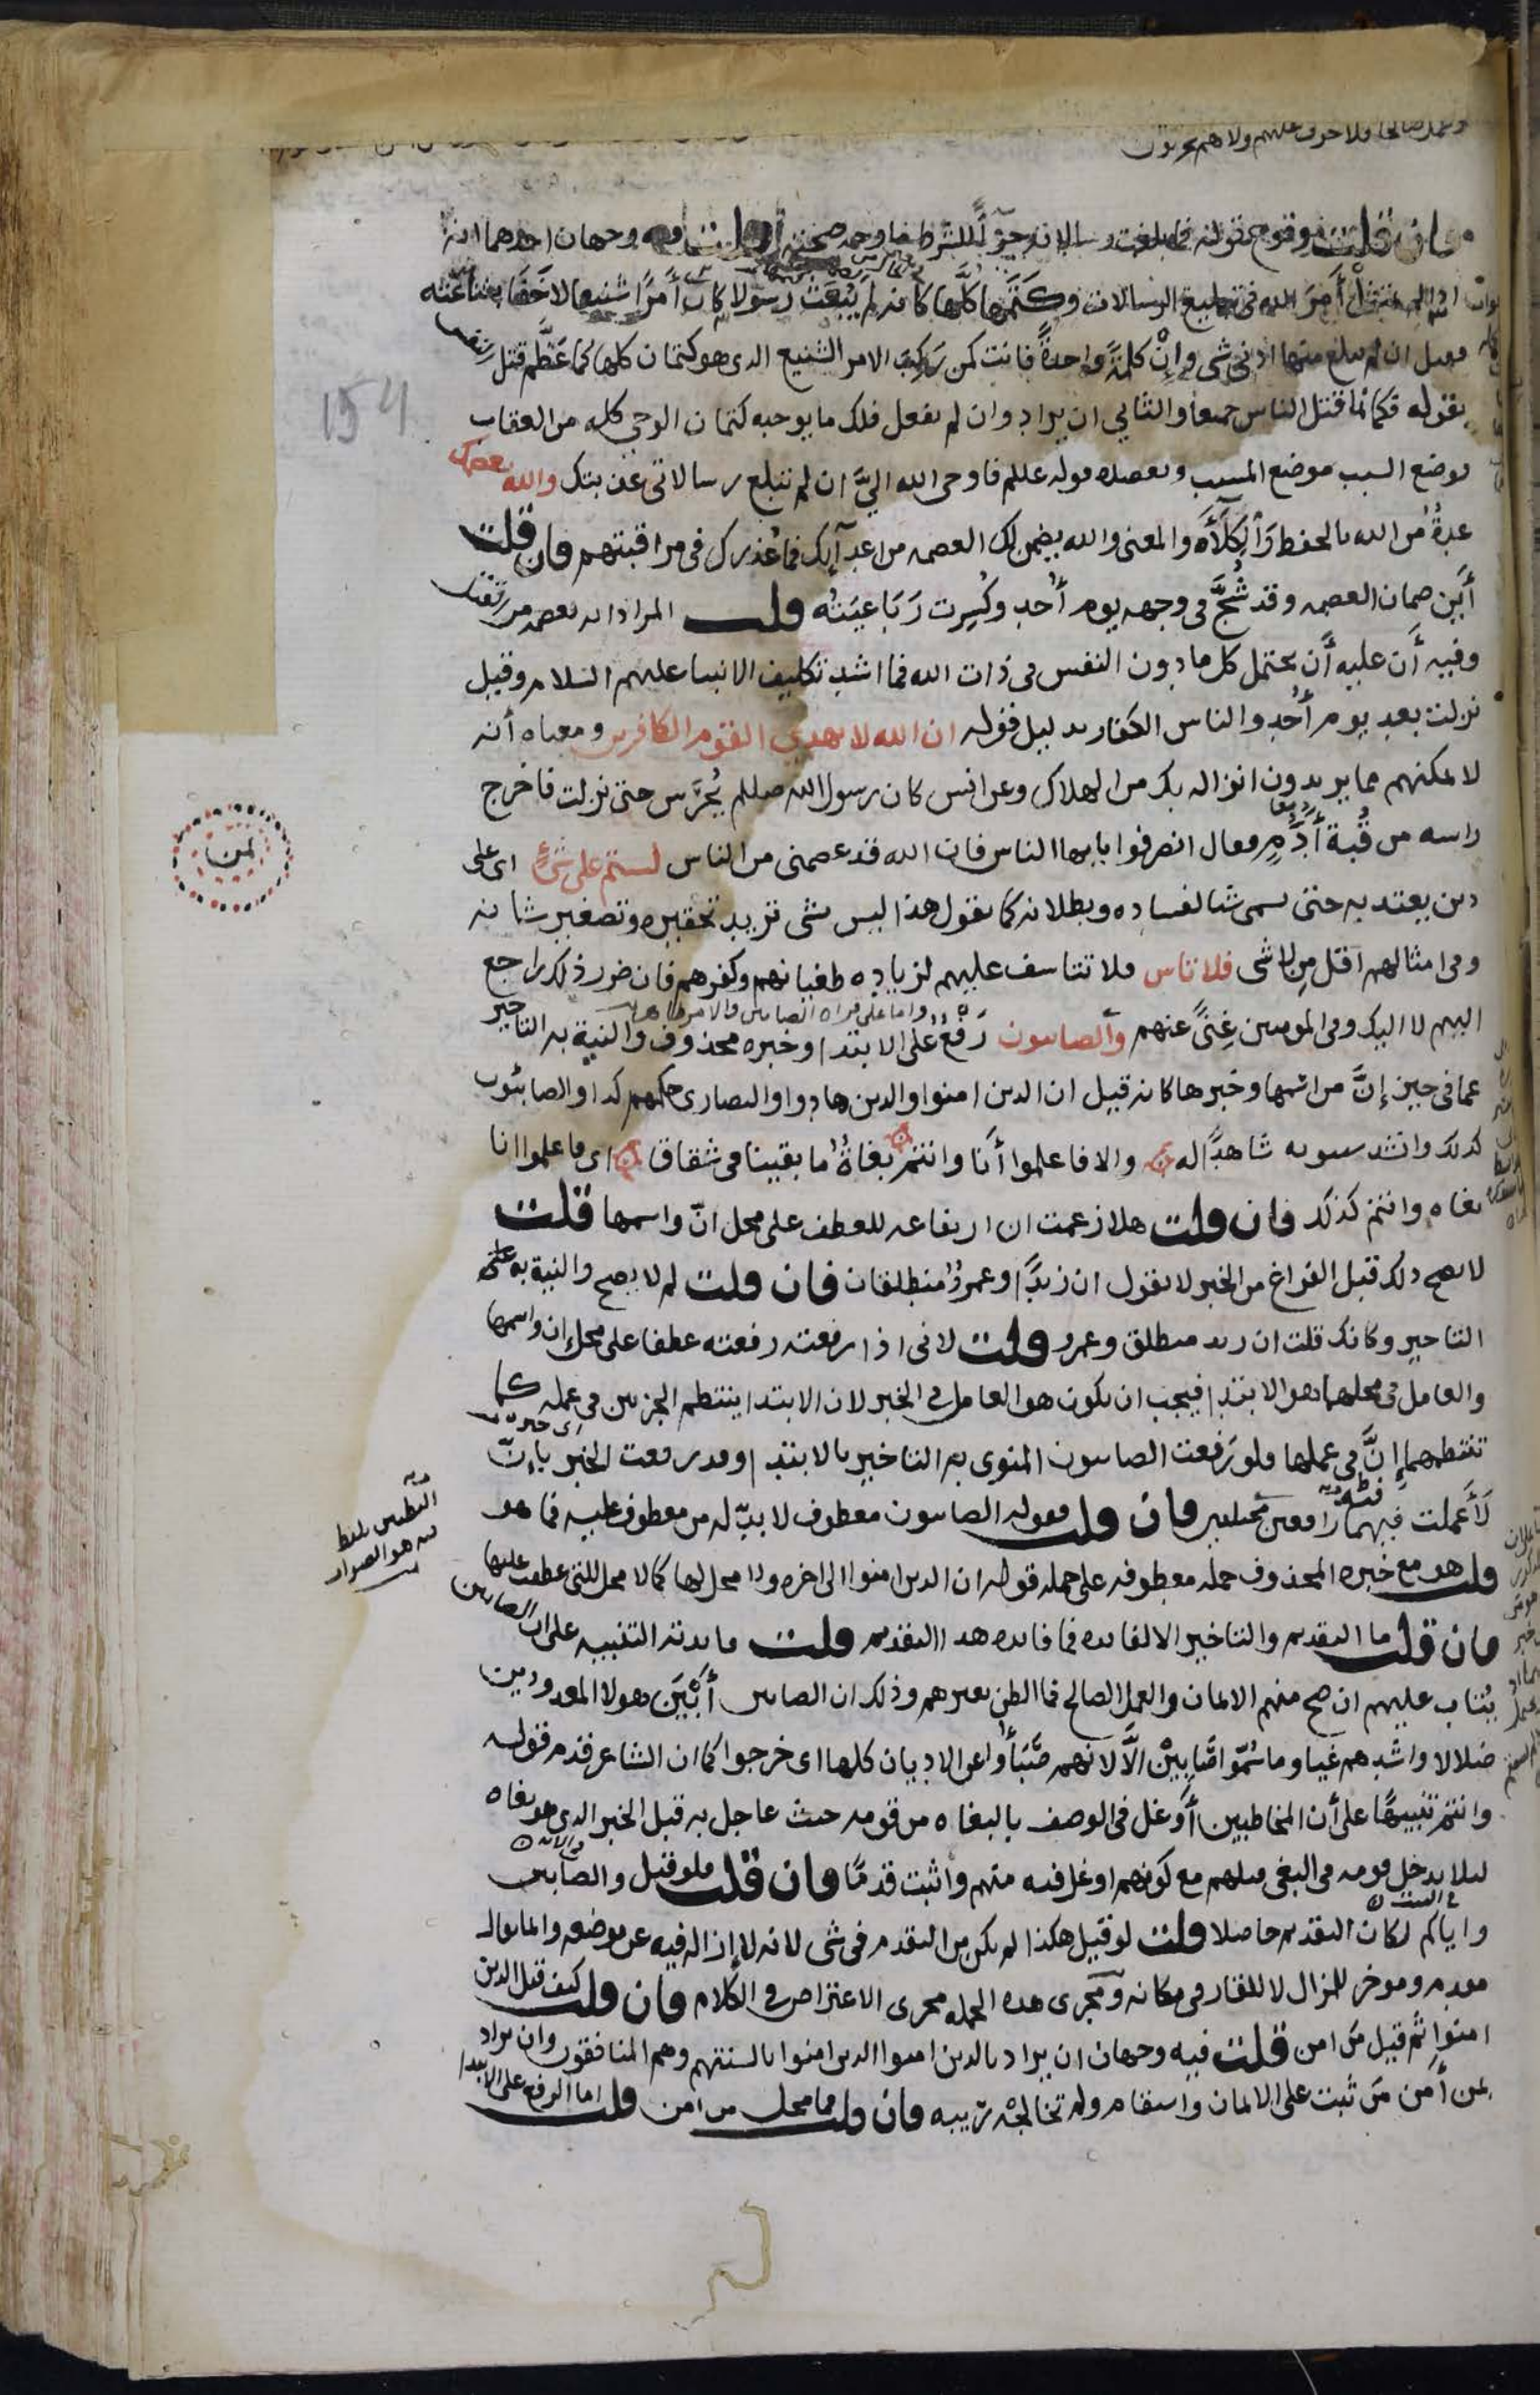 وعمل صالحا فلا خوف عليهم ولا هم يحزنون
فان قلت وقوع قوله فما بلغت رسالاته جزاً للشرط ما وجه صحته قلت فيه وجهان احدهما انه
اذا لم يمتثل أمر الله في تبليغ الرسالات وكتمها كلها كانه لم يُبعث رسولا كان أمرًا شنيعا لاخفا بشناعته
فقيل ان لم تبلغ منها ادنى شي وإن كلمةً واحدةً فانت كمن ركب الامر الشنيع الذي هو كتمان كلها كما عظّم قتل
154
بقوله فكانما قتل الناس جميعا والثاني ان يراد وان لم تفعل فلك ما يوجبه كتمان الوحي كله من العقاب
فوضع السبب موضع المسبب ويعضده قوله علىلم فاوحى الله اليّ ان لم تبلغ رسالاتي عذبتك والله يعصمك
عدةٌ من الله بالحفظ والكلأه والمعنى والله يضمن لك العصمه من اعدآئك فما عذرك في مراقبتهم فان قلت
أين ضمان العصمه وقد شُجّ في وجهه يوم أُحد وكُسِرت رَبَاعيَتُه قلت المراد انه يعصمه من القتل
وفيه أن عليه أن يحتمل كل ما دون النفس في ذات الله فما اشد تكليف الانبيا عليهم السلام وقيل
نزلت بعد يوم أُحد والناس الكفار بدليل قوله ان الله لا يهدي القوم الكافرين ومعناه أنه
لا يمكنهم مما يريدون انزاله بك من الهلاك وعن انس كان رسول الله صلىلم يُحرَس حتى نزلت فاخرج
راسه من قُبة أدَمٍ وقال انصرفوا يايها الناس فان الله قد عصمني من الناس لستم على شيٍ اي على
دين يعتد به حتى يسمى شيا لفساده وبطلانه كما تقول هذا ليس بشي تريد تحقيره وتصغير شانه
وفي امثالهم اقل من لاشي فلا تاس فلا تتاسف عليهم لزياده طغيانهم وكفرهم فان ضرر ذلك راجع
اليهم لا اليك وفي المومنين غِنىً عنهم والصابيون رَفعٌ على الابتدا وخبره محذوف والنية به التاخير
عما في حيز إنّ من اسمها وخبرها كانه قيل ان الذين امنوا والذين هادوا والنصارى حكمهم كذا والصابئون
كذلك وانشد سيبويه شاهدًا له والا فاعلموا أنا وانتم بغاةٌ ما بقينا في شقاق اي فاعلموا انا
بغاه وانتم كذلك فان قلت هلا زعمت ان ارتفاعه للعطف على محل انّ واسمها قلت
لا يصح ذلك قبل الفراغ من الخبر لا تقول ان زيدًا وعمروٌ منطلقان فان قلت لم لا يصح والنية به
التاخير وكانك قلت ان زيد منطلق وعمرو قلت لاني اذا رفعته رفعته عطفا على محل ان واسمها
والعامل في محلهما هو الابتدا فيجب ان يكون هو العامل في الخبر لان الابتدا ينتظم الجزءين في عمله كما
تنتظمهما إنّ في عملها فلو رَفعت الصابيون المنوي به التاخير بالابتدا وقد رفعت الخبر بإنّ
لأَعملت فيهما رافعين مختلفين فان قلت فقوله الصابيون معطوف لا بدّ له من معطوف عليه فما هو
قلت هو مع خبره المحذوف جمله معطوفه على جمله قوله ان الذين امنوا الى اخره ولا محل لها كما لا محل للتي عطفت عليها
فان قلت ما التقديم والتاخير الا لفايده فما فايده هذا التقديم قلت فايدته التنبيه على ان الصابين
يُتاب عليهم ان صح منهم الايمان والعمل الصالح فما الظن بغيرهم وذلك ان الصابين أبْيَن هولا المعدودين
ضلالا واشدهم غيا وما سُمّوا صَابِيْنَ الّا لانهم صَبَأُوا عن الاديان كلها اي خرجوا كما ان الشاعر قدم قوله
وانتم تنبيهًا على أن المخاطبين أوغل في الوصف بالبغاه من قومه حيث عاجل به قبل الخبر الذي هو بغاه
ليلا يدخل قومه في البغي قبلهم مع كونهم اوغل فيه منهم واثبت قدمًا فان قلت فلو قيل والصابين
واياكم لكان التقديم حاصلا قلت لو قيل هكذا لم يكن من التقدم في شي لانه لا ازاله فيه عن موضعه وانما يقال
مقدم وموخر للمزال لا للقار في مكانه ومَجرى هذه الجمله مجرى الاعتراض في الكلام فان قلت كيف قيل الذين
امنوا ثم قيل مَن امن قلت فيه وجهان ان يراد بالذين امنوا الذين امنوا بالسنتهم وهم المنافقون وان يراد
بمن أمن مَن ثبت على الايمان واستقام ولم تخالجه ريبه فان قلت فما محل من امن قلت اما الرفع على الابتدا
ثمن